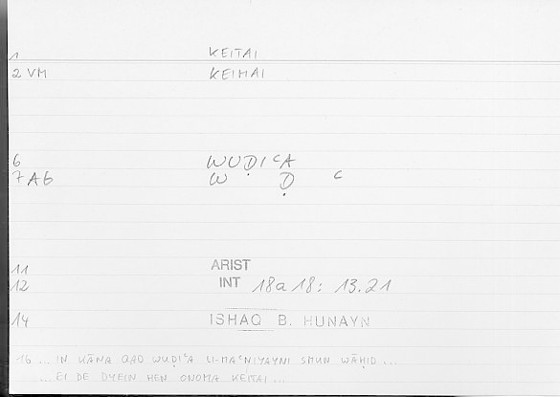 1 KEITAI
2 VM KEIMAI
6 WUḌIʿA
7 AB W Ḍ ʿ
11 ARIST
12 INT 18a18: 13.21
14 ISHAQ B. HUNAYN
16 ... IN KĀNA QAD WUḌIʿA LI-MAʿNIYAYNI SMUN WĀḤID ...
... EI DE DYEIN HEN ONOMA KEITAI ...